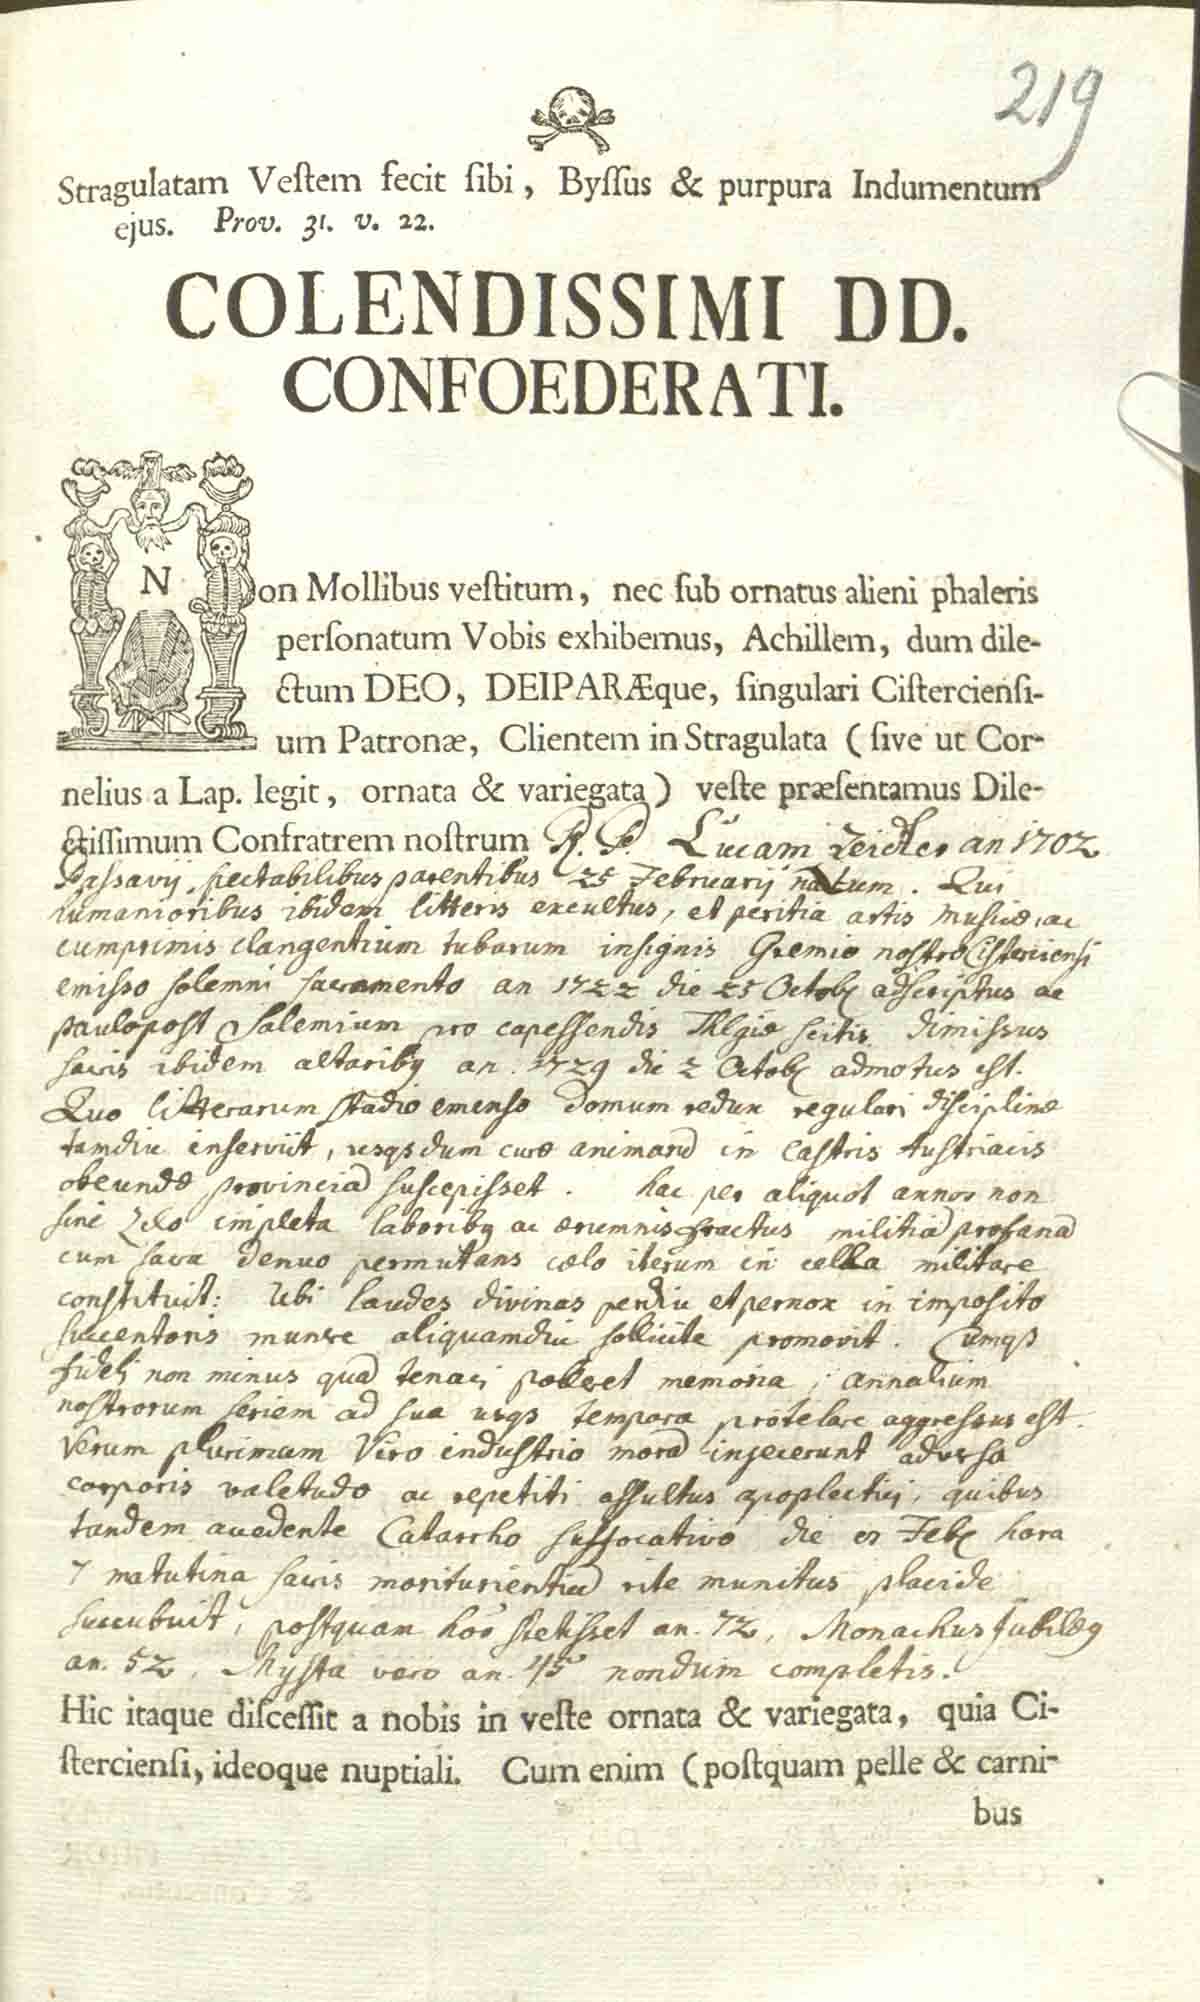 219
Stragulatam Veſtem fecit ſibi, Byſſus & purpura Indumentum
ejus. Prov. 31. v. 22.
COLENDISSIMI DD.
CONFOEDERATI.
Non Mollibus veſtitum, nec ſub ornatus alieni phaleris
perſonatum Vobis exhibemus, Achillem, dum dile-
ctum DEO, DEIPARÆque, ſingulari Ciſtercienſi-
um Patronæ, Clientem in Stragulata (ſive ut Cor-
nelius a Lap. legit, ornata & variegata) veſte præſentamus Dile-
ctiſſimum Confratrem noſtrum R. P. Lucam Zeidler an 1702
Passavij spectabilibus parentibus 25 Februarij natum. Qui
humanioribus ibidem litteris excultus, et peritia artis musicæ, ac
cumprimis clangentium tubarum insignis Gremio nostro Cisterciensi
emisso solemni sacramento an 1722 die 25 Octob adscriptus ac
paulopost Salemium pro capessendis scitis dimissus
sacris ibidem altariby an. 1729 die 2 Octob admotus est.
Quo litterarum stadio emenso domum redux regulari disciplinæ
tamdiu inserviit, usqs dum curæ animarū in Castris Austriacis
obeundæ provinciā suscepisset. hac per aliquot annos non
sine Zelo impleta laboriby ac ærumnis fractus militiā profanā
cum sacra denuo permutans cœlo iterum in cella militare
constituit: Ubi laudes divinas perdiu et pernox in imposito
succentoris munere aliquamdiu sollicite promovit. Cumqs
fideli non minus quā tenaci polleret memoria, annalium
nostrorum seriem ad sua usqs tempora protelare aggressus est.
Verum plurimam Viro industrio morā injecerunt adversa
corporis valetudo ac repetiti assultus apoplectici, quibus
tandem accedente Catarrho suffocativo die Feb hora
7 matutina sacris moriturientiū rite munitus placide
succubuit, postquam stetisset an. 72, Monachus Jubilæy
an. 52, Mysta vero an. 45 nondum completis.
Hic itaque diſceſſit a nobis in veſte ornata & variegata, quia Ci-
ſtercienſi, ideoque nuptiali. Cum enim (poſtquam pelle & carni-
bus